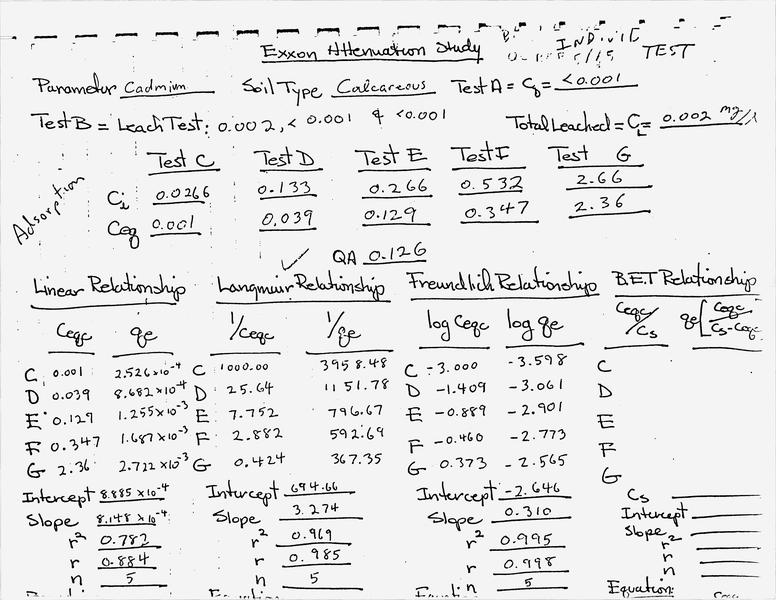 Exxon Attenuation Study INDIVIE TEST
Parameter Cadmium Soil Type Calcareous Test A = C8 = <0.001
Test B = Leach Test: 0.002, < 0.001 & <0.001 Total Leached = CL = 0.002 mg/l
Test C Test D Test E Test F Test G
Adsorption
Ci 0.0266 0.133 0.266 0.532 2.66
Ceq 0.001 0.039 0.129 0.347 2.36
QA 0.126
Linear Relationship ✓ Langmuir Relationship Freundlich Relationship B.E.T Relationship
Ceqc qe 1/Ceqc 1/qe log Ceqc log qe Ceqc/Cs qe[Ceqc/Cs-Ceqc
C 0.001 2.526x10-4 C 1000.00 3958.48 C -3.000 -3.598 C
D 0.039 8.682x10-4 D 25.64 1151.78 D -1.409 -3.061 D
E 0.129 1.255x10-3 E 7.752 796.67 E -0.889 -2.901 E
F 0.347 1.687x10-3 F 2.882 592.69 F -0.460 -2.773 F
G 2.36 2.722x10-3 G 0.424 367.35 G 0.373 -2.565 G
Intercept 8.885x10-4 Intercept 694.66 Intercept -2.646 Cs
Slope 8.148x10-4 Slope 3.274 Slope 0.310 Intercept
r2 0.782 r2 0.969 r2 0.995 Slope
r 0.884 r 0.985 r 0.998 r2
n 5 n 5 n 5 r
n
Equation: